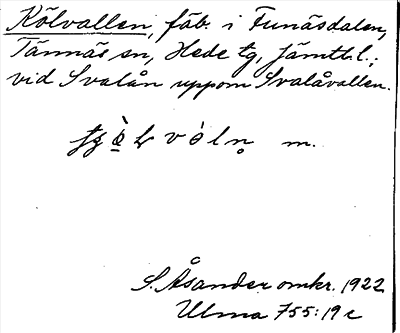 Kölvallen, fäb. i Funäsdalen,
Tännäs sn, Hede tg, Jämtl. l.;
vid Svalån uppom Svalåvallen.
m.
S. Åsander omkr. 1922
Ulma 755:19 c